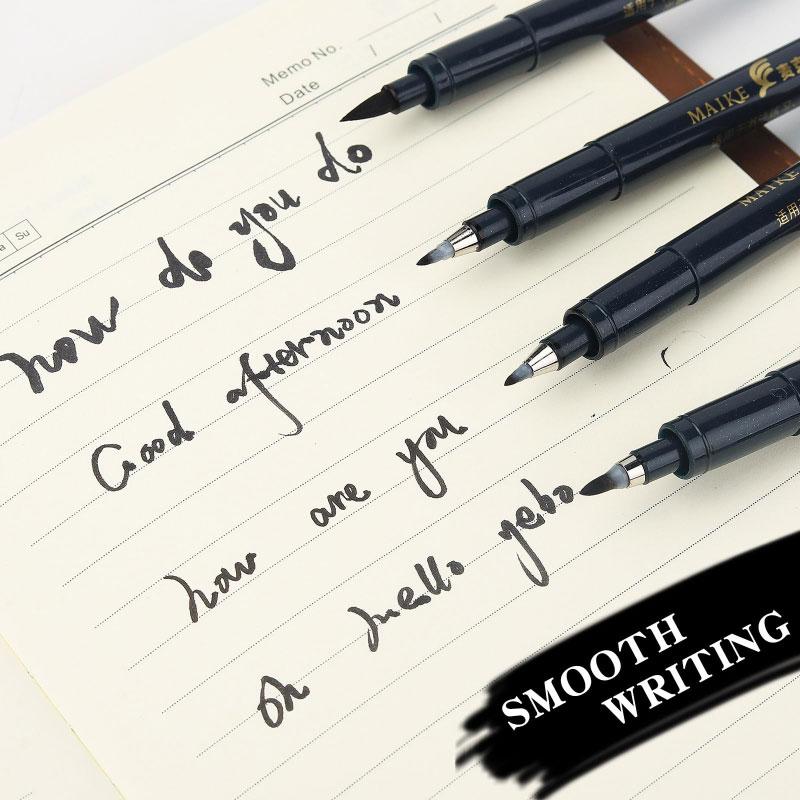 Memo No.
Date / /
Su
how do you do
Good afternoon
how are you
oh hello yebo
MAIKE
MAIKE
适用
SMOOTH
WRITING